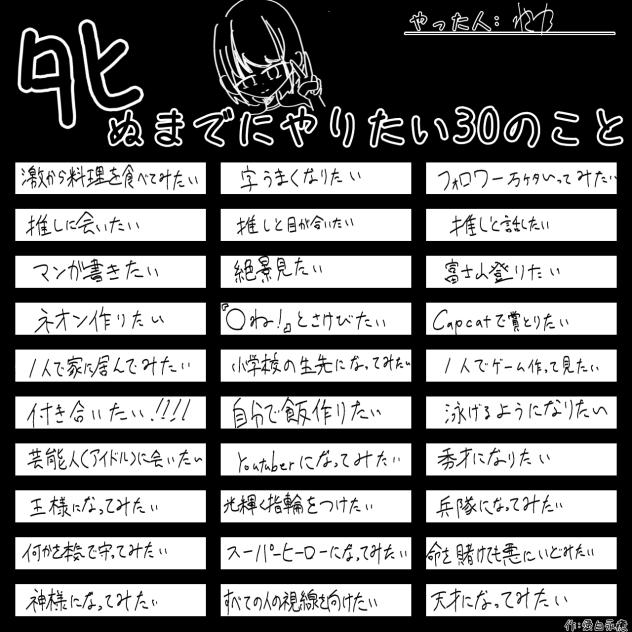 やった人:
死
ぬまでにやりたい30のこと
激から料理を食べてみたい
字うまくなりたい
フォロワー万ケタいってみたい
推しに会いたい
推しと目が合いたい
推しと話したい
マンガ書きたい
絶景見たい
富士山登りたい
ネオン作りたい
『〇ね!』とさけびたい
Capcatで賞とりたい
1人で家に居んでみたい
小学校の生先になってみたい
1人でゲーム作って見たい
付き合いたい!!!!
自分で飯作りたい
泳げるようになりたい
芸能人(アイドル)に会いたい
Youtuberになってみたい
秀才になりたい
王様になってみたい
光輝く指輪をつけたい
兵隊になってみたい
何かを本気で守ってみたい
スーパーヒーローになってみたい
命を賭けても悪にいどみたい
神様になってみたい
すべての人の視線を向けたい
天才になってみたい
作: